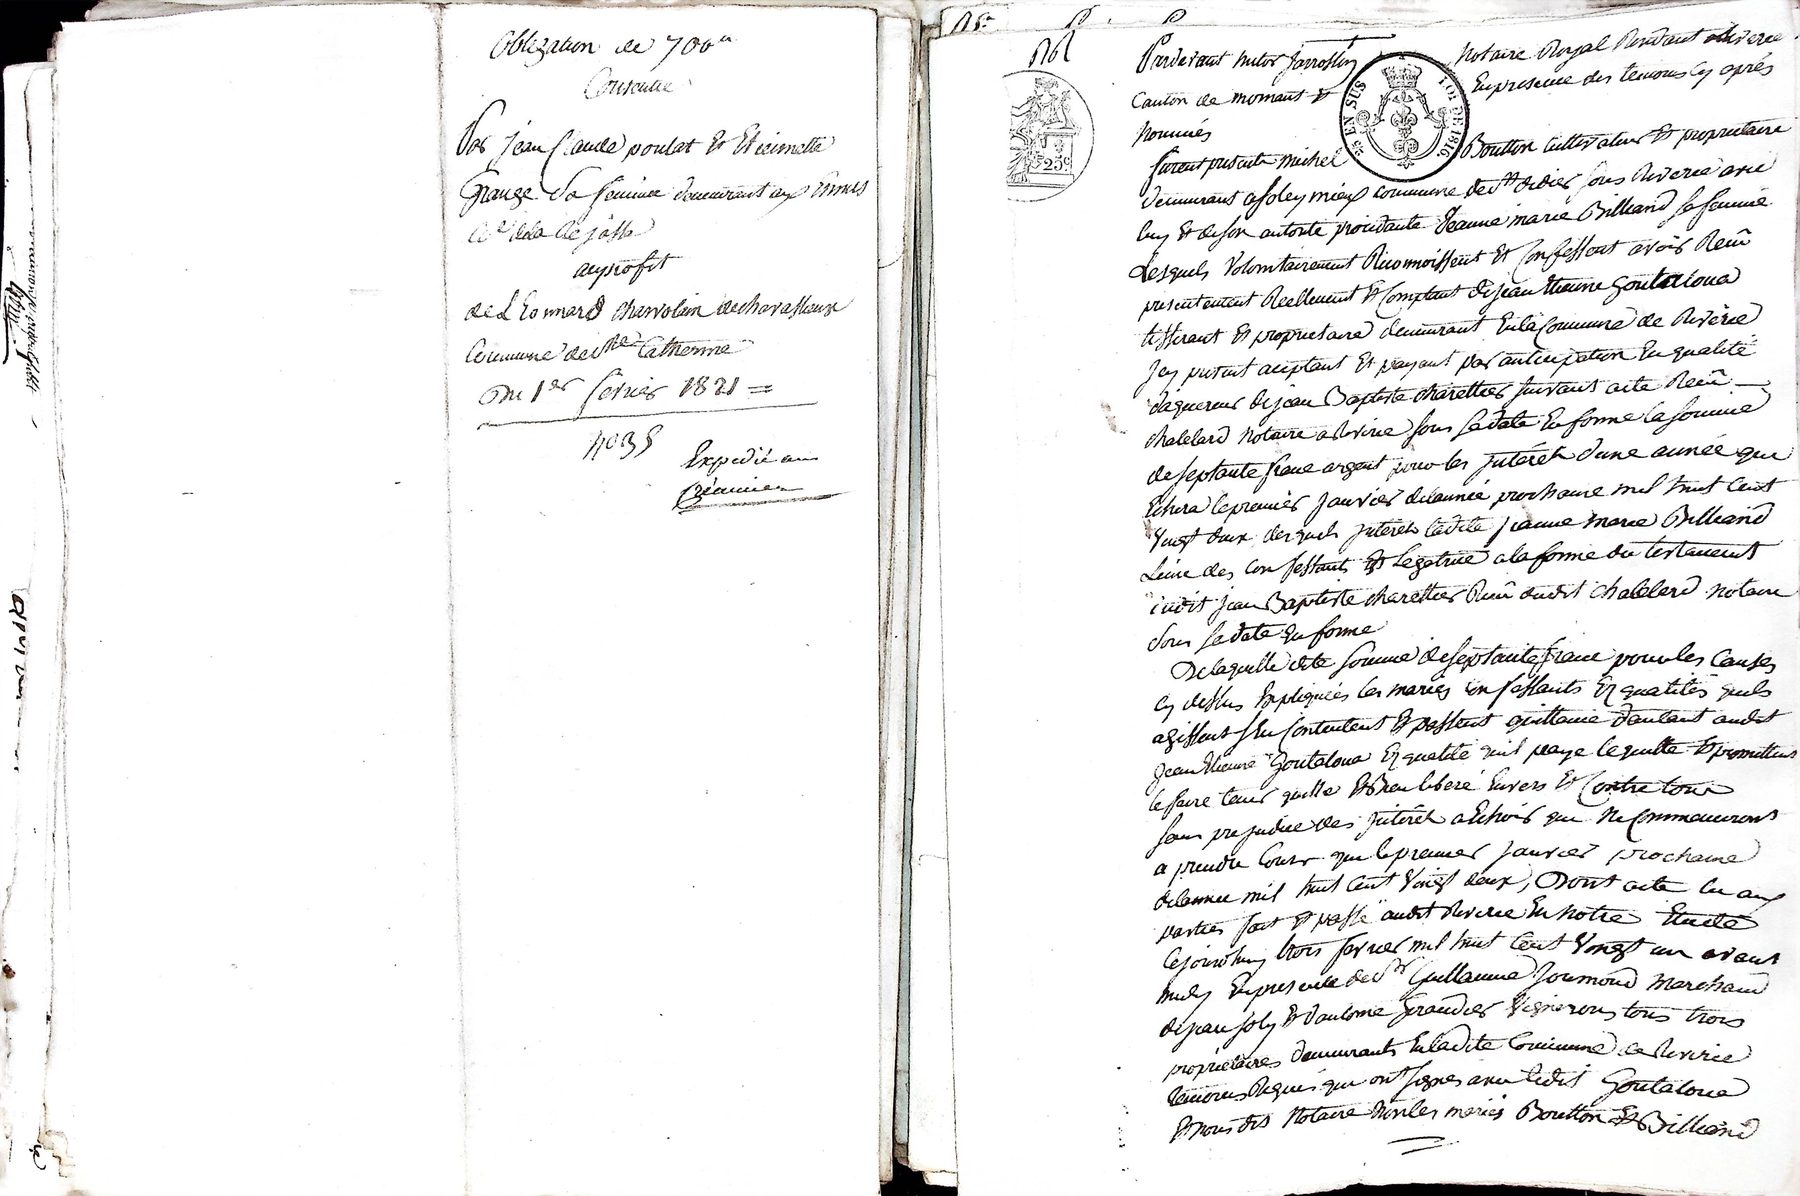 Obligation de 700 ""
Consentie
Par jean Claude poulat Et Etiennette
Grange Sa femme demeurant aux
Cne de la
au profit
de Léonnard charvolain de chavassieux
Commune de Ste Catherine
Du 1er fevrier 1821 =
4035
Expédié au
Créancier
Pardevant notaire Royal Residant a Riverie
Canton de mornant Et En presence des temoins cy après
Nommés
furent presents michel Boutton cultivateur Et proprietaire
demeurant a soleymieux commune de St didier sous Riverie avec
luy Et de son autorité procédante Jeanne marie Billiand sa femme
Lesquels volontairement Reconnoissent Et Confessent avoir Reçu
presentement Reellement Et Comptant de jean Etienne Goutaloua
tisserant Et proprietaire demeurant En la Commune de Riverie
jcy present aceptant Et payant par anticipation En qualité
daquereur de jean Baptiste charettier suivant acte Reçu
chalelard Notaire a Riverie sous sa date En forme la somme
de septante franc argent pour les jntérêts d'une année que
Echera le premier janvier de lannée prochaine mil huit cent
vingt deux desquels jntérêts ladite jeanne marie Billiand
Lune des confessants Est Legatrice a la forme du testament
dudit jean Baptiste charettier Reçu dudit chalelard notaire
sous sa date En forme
De laquelle dite somme de septante franc pour les causes
cy dessus Expliquées les mariés confessants Ez qualités quils
agissent sen Contentent Et passent quittance d'autant audit
jean Etienne Goutaloua Ez qualité quil paye le quitte Et promettent
le faire tenir quitte Et Bien liberé Envers Et Contre tous
sans prejudice des jntérêts a Echoir qui Ne Commenceront
a prendre Cours que le premier janvier prochaine
de lannée mil huit Cent vingt deux, Dont acte lu aux
parties fait Et passé audit Riverie En notre Etude
Cejourdhuy trois fevrier mil huit Cent vingt un avant
midy En presence de Sr Guillaume Joumond marchand
de jean joly Et d'antoine Grandier vignerons tous trois
propriétaires demeurants En la dite Commune de Riverie
temoins Requis qui ont signés avec ledit Goutaloua
Et Nous dit Notaire Non les mariés Boutton Et Billiand
25 EN SUS
LOI DE 1816
25c